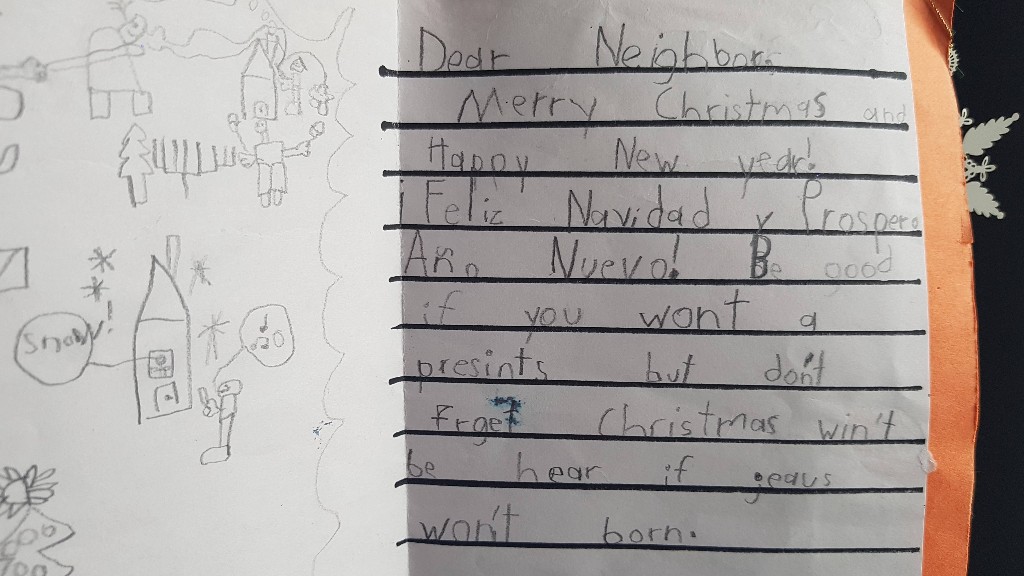 Snow!
Dear Neighbor:
Merry Christmas and
Happy New year!
¡Feliz Navidad y Prospero
Año Nuevo! Be good
if you wont a
presints but don't
Frget Christmas win't
be hear if jeaus
won't born.